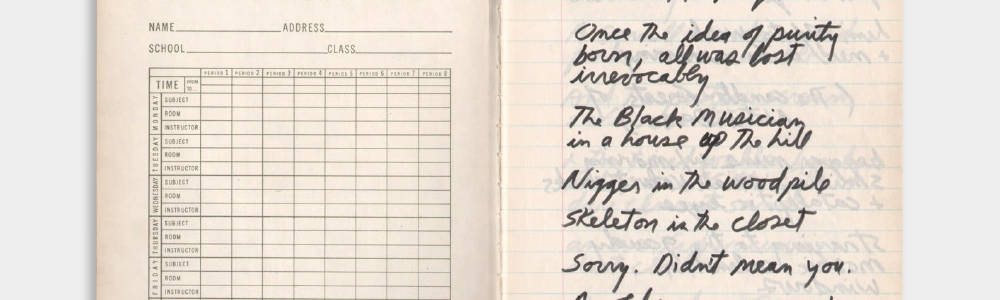 NAME ADDRESS
SCHOOL CLASS
PERIOD 1 PERIOD 2 PERIOD 3 PERIOD 4 PERIOD 5 PERIOD 6 PERIOD 7 PERIOD 8
TIME FROM
TO
MONDAY
SUBJECT
ROOM
INSTRUCTOR
TUESDAY
SUBJECT
ROOM
INSTRUCTOR
WEDNESDAY
SUBJECT
ROOM
INSTRUCTOR
THURSDAY
SUBJECT
ROOM
INSTRUCTOR
FRIDAY
SUBJECT
ROOM
INSTRUCTOR
Once the idea of purity
born, all was lost
irrevocably
The Black Musician
in a house up the hill
Nigger in the woodpile
Skeleton in the closet
Sorry. Didn't mean you.